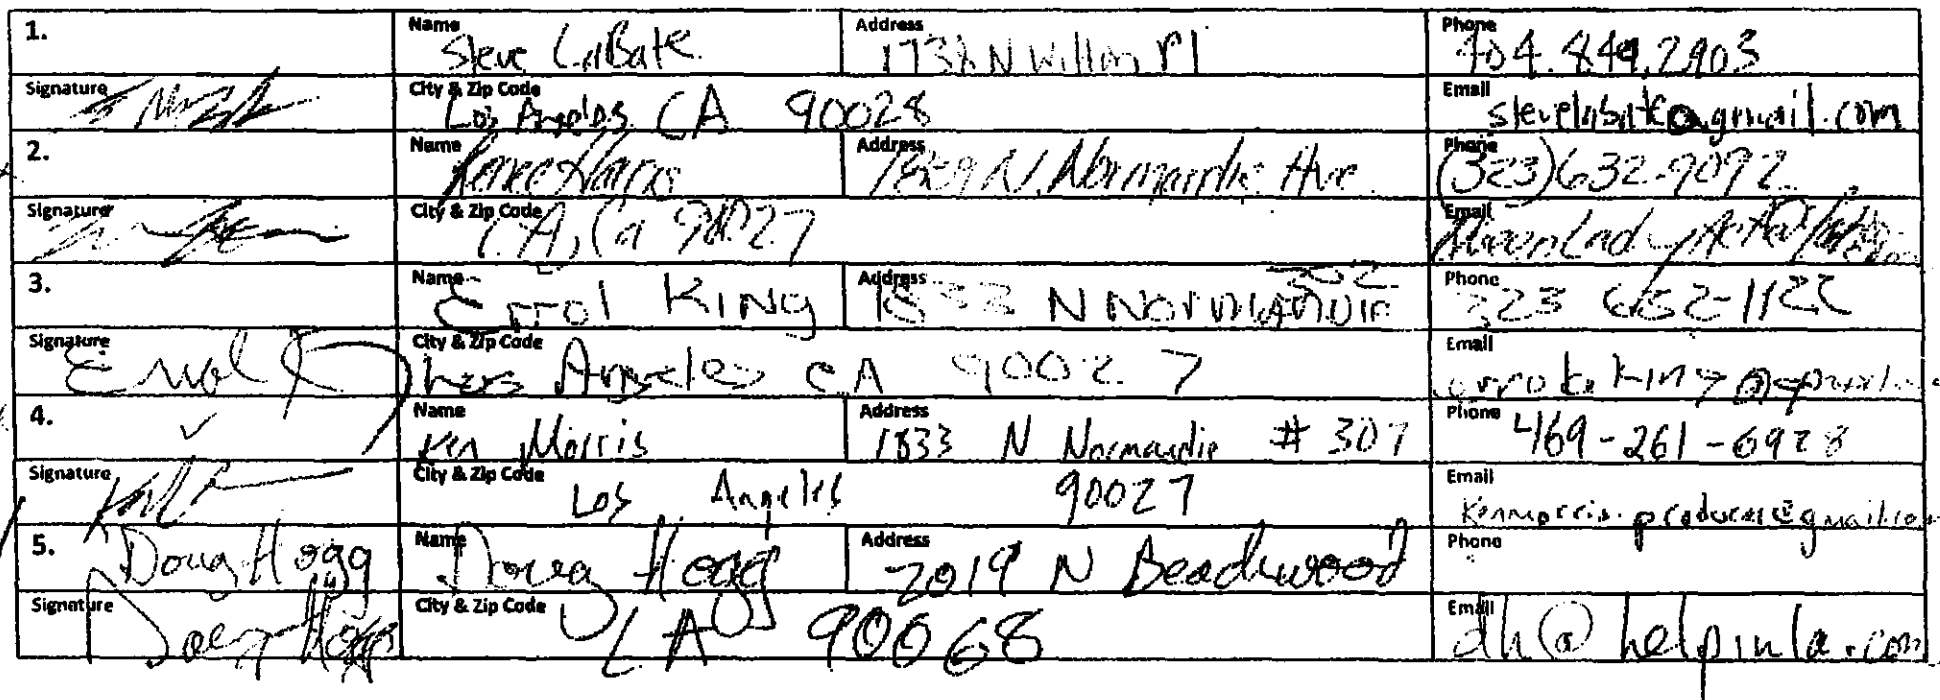 1. Name Steve LaBate Address N Wilton Pl Phone 404.849.2903
Signature City & Zip Code Los Angeles CA 90028 Email stevelabate@gmail.com
2. Name Renee Address N. Normandie Ave Phone (323)632-9092
Signature City & Zip Code LA, Ca 90027 Email
3. Name Errol King Address 1833 N Normandie 302 Phone 323
Signature Errol City & Zip Code Los Angeles CA 90027 Email
4. Name Ken Morris Address 1833 N Normandie # 307 Phone 469-261-6928
Signature City & Zip Code Los Angeles 90027 Email kenmorris.producer@gmail.com
5. Doug Hogg Name Doug Hogg Address 2019 N Beachwood Phone
Signature Doug Hogg City & Zip Code LA 90068 Email dh@helpinla.com